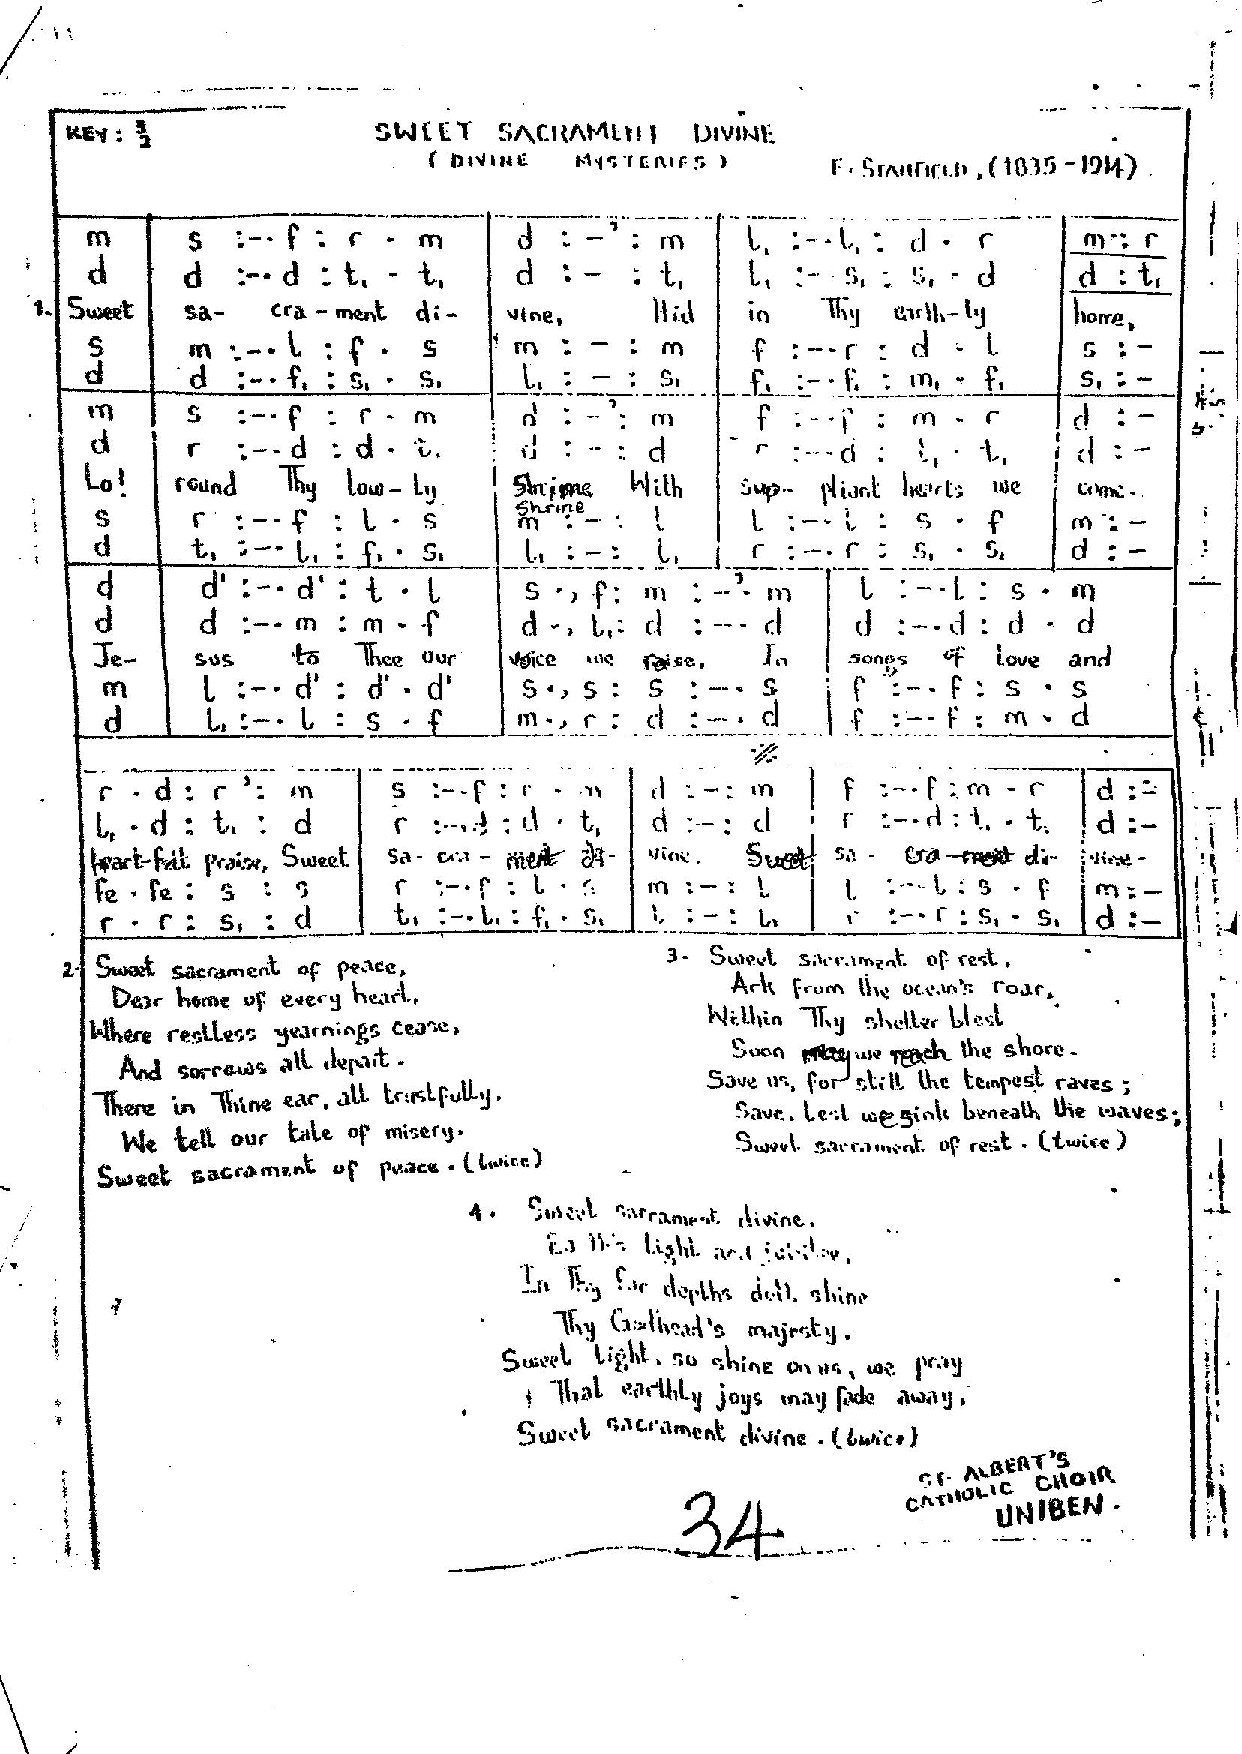 KEY: 3/2
SWEET SACRAMENT DIVINE
(DIVINE MYSTERIES)
F. STANFIELD, (1835-1914).
m | s :-. f : r . m | d :-' : m | l, :-. l, : d . r | m : r
d | d :-. d : t, . t, | d :- : t, | l, :- s, : s, . d | d : t,
1. Sweet sa- cra-ment di- vine, Hid in Thy earth-ly home,
s | m :-. l : f . s | m : - : m | f :-. r : d . l | s : -
d | d :-. f, : s, . s, | l, : - : s, | f, :-. f, : m, . f, | s, : -
m | s :-. f : r . m | d :-' : m | f :-. f : m . r | d : -
d | r :-. d : d . t, | d : - : d | r :-. d : t, . t, | d : -
Lo! round Thy low-ly Shrine With sup- pliant hearts we come.
Shrine
s | r :-. f : l . s | m : - : l | l :-. l : s . f | m : -
d | t, :-. l, : f, . s, | l, : - : l, | r :-. r : s, . s, | d : -
d | d' :-. d' : t . l | s ., f : m :-'. m | l :-. l : s . m
d | d :-. m : m . f | d ., l, : d :-. d | d :-. d : d . d
Je- sus to Thee our voice we raise, In songs of love and
m | l :-. d' : d' . d' | s ., s : s :-. s | f :-. f : s . s
d | l, :-. l : s . f | m ., r : d :-. d | f :-. f : m . d
r . d : r ' : m | s :-. f : r . m | d :- : m | f :-. f : m . r | d :-
l, . d : t, : d | r :-. d : d . t, | d :- : d | r :-. d : t, . t, | d :-
heart-felt praise, Sweet sa- cra- ment di- vine. Sweet sa- cra-ment di- vine-
fe . fe : s : s | r :-. f : l . s | m :- : l | l :-. l : s . f | m :-
r . r : s, : d | t, :-. l, : f, . s, | l, :- : l, | r :-. r : s, . s, | d :-
2- Sweet sacrament of peace,
Dear home of every heart,
Where restless yearnings cease,
And sorrows all depart.
There in Thine ear, all trustfully,
We tell our tale of misery.
Sweet sacrament of peace. (twice)
3- Sweet sacrament of rest,
Ark from the ocean's roar,
Within Thy shelter blest
Soon may we reach the shore.
Save us, for still the tempest raves;
Save, lest we sink beneath the waves;
Sweet sacrament of rest. (twice)
4. Sweet sacrament divine.
light and jubilee,
In Thy far depths doth shine
Thy Godhead's majesty.
Sweet light, so shine on us, we pray
That earthly joys may fade away,
Sweet sacrament divine. (twice)
ST. ALBERT'S
CATHOLIC CHOIR
UNIBEN.
34